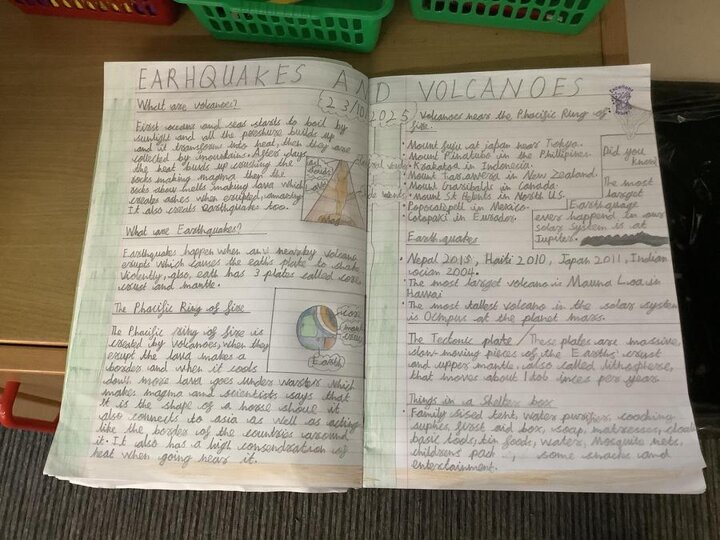 EARHQUAKES AND VOLCANOES
23/10/2025
What are volcanoes?
First oceans and seas starts to boil by
sunlight and all the preshure builds up
and it transform into heat, then they are
collected by mountains. After days
the heat builds up crushing the
rocks making magma then the
rocks above melts making lava which
creates ashes when erupted,
It also creats Earthquakes too.
What are Earthquakes?
Earthquakes happen when an nearby volcano
erupts which causes the eath's plate to shake
violently, also, eath has 3 plates called core,
crust and mantle.
The Phacific Ring of fire
The Phacific ring of fire is
created by volcanoes, when they
erupt the lava makes a
border and when it cools
down more lava goes under which
makes magma and scientists says that
It is the shape of a horse shoue it
also connects to asia as well as acting
like the border of the countries around
it. It also has a high consendration of
heat when going near it.
core
Earth
Volcanoes near the Phacific Ring of
fire.
• Mount fuju at japan near Tokyo.
• Mount Pinatubo in the Phillipines.
• Krakatoa in Indonecia.
• Mount Tarawera in New Zealand.
• Mount Garibaldi in Canada.
• Mount St Helents in North U.S.
• Popocatepell in Mexico.
• Cotapaxi in Euroador.
Did you
know?
The most
largest
Earthquage
ever happend in our
solar system is at
Jupiter.
Earthquakes
• Nepal 2015, Haiti 2010, Japan 2011, Indian
ocian 2004.
• The most largest volcano is Mauna Loa in
Hawai
• The most tallest volcano in the solar system
is Olmpus at the planet mars.
The Tectonic plate / These plates are massive,
slow moving pieces of the Earths' crust
and upper mantle, also called lithospherse,
that moves about 1 to 2 inces per years
Things in a Shelter box
• Family sised tent, water purifier, coocking
first aid box, soap, matresses, cloath
basic tools, tin foods, water, Mosquito nets,
childrens pack, some snacks and
entertainment.